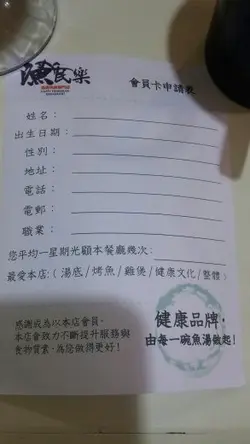 漁民樂
會員卡申請表
姓名：
出生日期：
性別：
地址：
電話：
電郵：
職業：
您平均一星期光顧本餐廳幾次：
最愛本店：( 湯底 / 烤魚 / 雞煲 / 健康文化 / 整體 )
感謝成為小本店會員，
本店會致力不斷提升服務與
食物質素，為您做得更好！
健康品牌，
由每一碗魚湯做起！